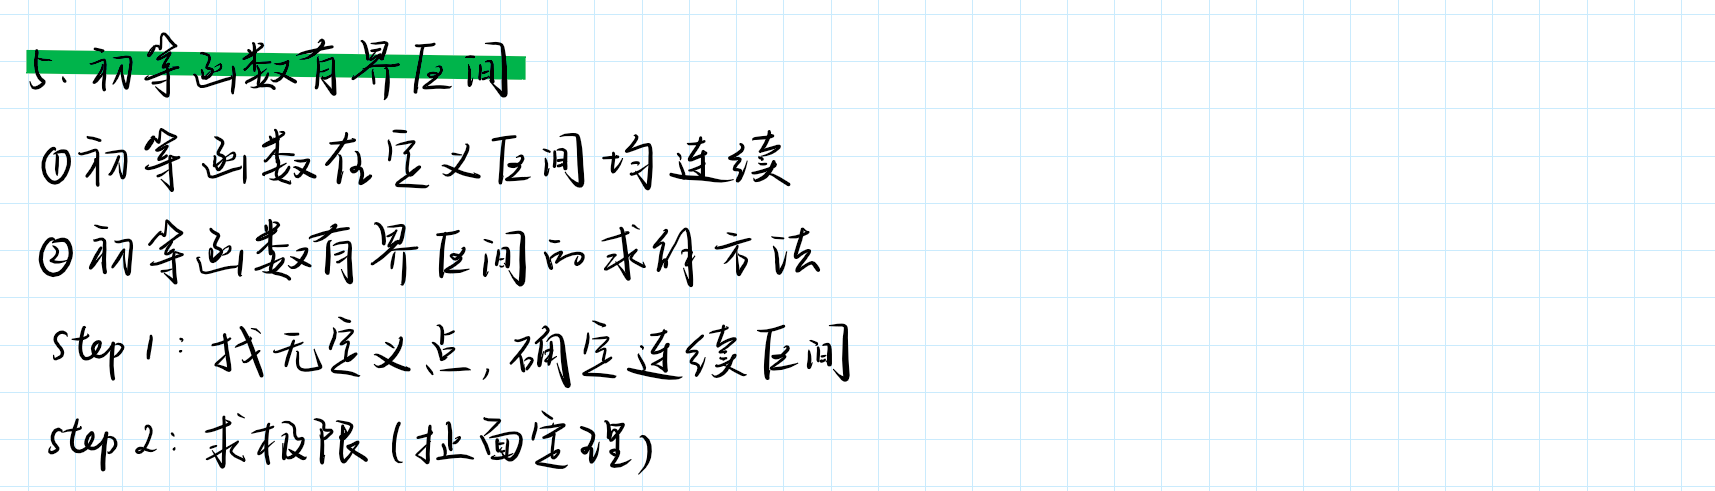 5. 初等函数有界区间
①初等函数在定义区间均连续
②初等函数有界区间的求解方法
step 1: 找无定义点, 确定连续区间
step 2: 求极限(扯面定理)